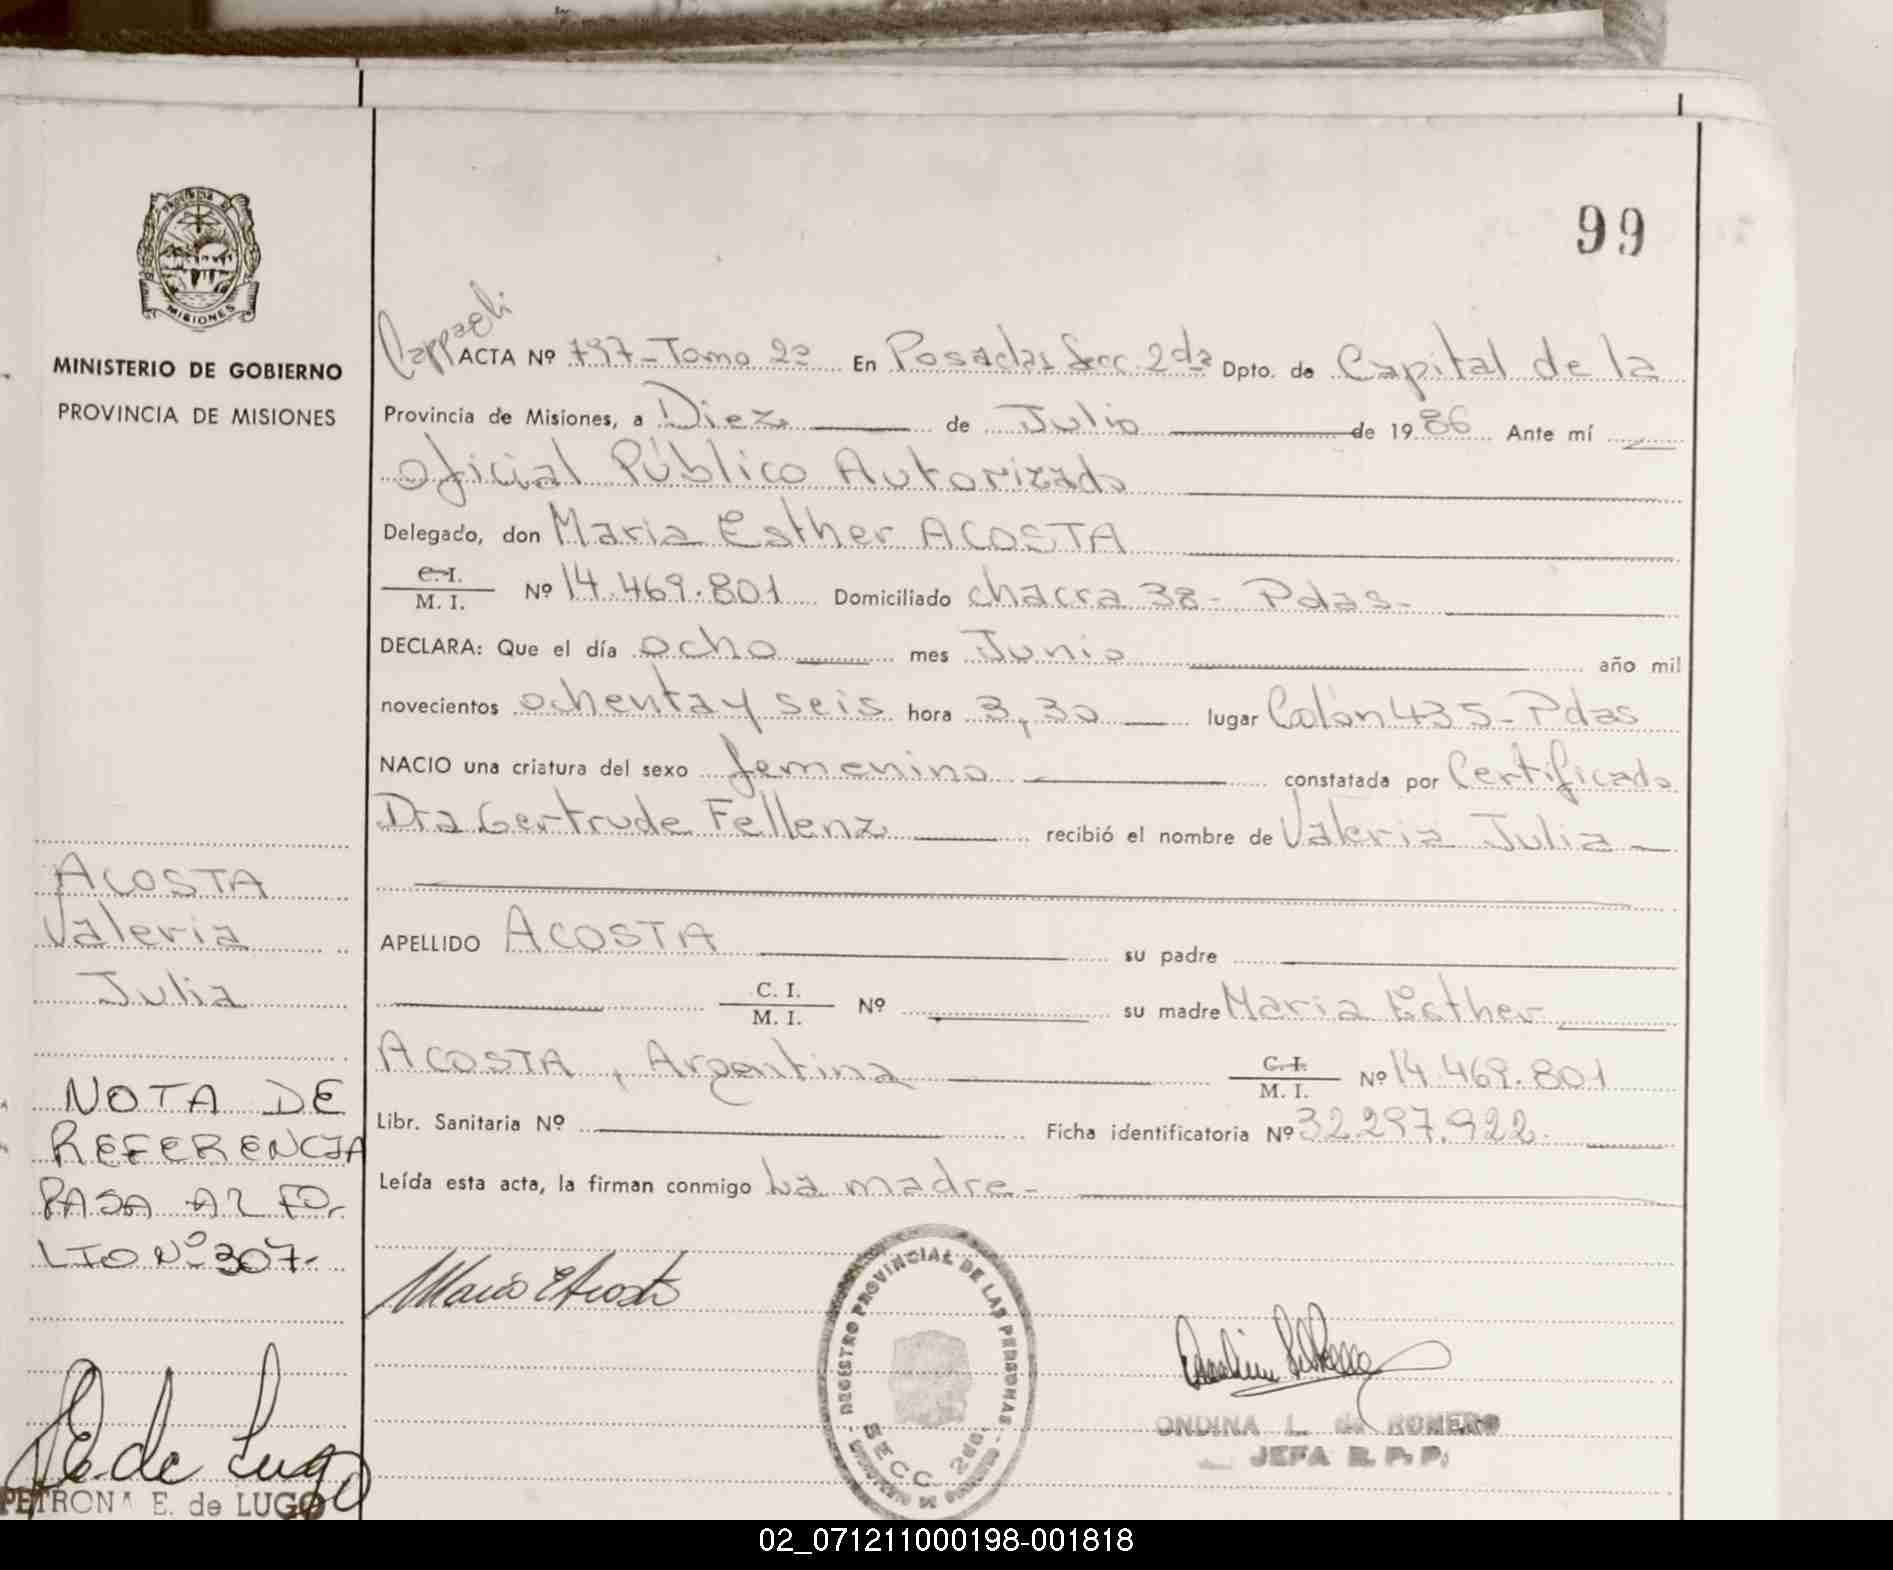 99
PROVINCIA DE
MISIONES
MINISTERIO DE GOBIERNO
PROVINCIA DE MISIONES
ACTA Nº 797-Tomo 2º En Posadas Secc. 2da Dpto. de Capital de la
Provincia de Misiones, a Diez de Julio de 1986 Ante mí
Oficial Público Autorizado
Delegado, don Maria Esther ACOSTA
C. I.
M. I. Nº 14.469.801 Domiciliado chacra 38- Pdas-
DECLARA: Que el día ocho mes Junio año mil
novecientos ochenta y seis hora 3,30 lugar Colón 435-Pdas
NACIO una criatura del sexo femenino constatada por Certificado
Dra Gertrude Fellenz recibió el nombre de Valeria Julia
APELLIDO ACOSTA su padre
C. I.
M. I. Nº su madre Maria Esther
ACOSTA, Argentina C. I.
M. I. Nº 14.469.801
Libr. Sanitaria Nº Ficha identificatoria Nº 32.297.922.
Leída esta acta, la firman conmigo La madre-
ACOSTA
Valeria
Julia
NOTA DE
REFERENCIA
PASA AL FO-
LIO Nº 307-
E. de Lugo
PETRONA E. de LUGO
Maria E Acosta
REGISTRO PROVINCIAL DE LAS PERSONAS
SECC 2da.
ONDINA L. de ROMERO
JEFA R. P. P.
02_071211000198-001818